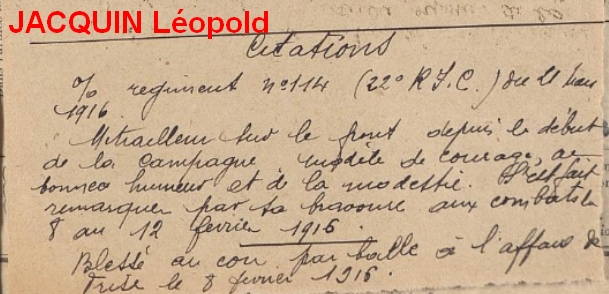 JACQUIN Léopold
Citations
O/ regiment n° 114 (22° R.I.C.) du 11 mars
1916.
Mitrailleur sur le front depuis le début
de la campagne modèle de courage, de
bonne humeur et de la modestie. S'est fait
remarquer par sa bravoure aux combats du
8 au 12 février 1916.
Blessé au cou par balle à l'affaire de
Frise le 8 février 1916.